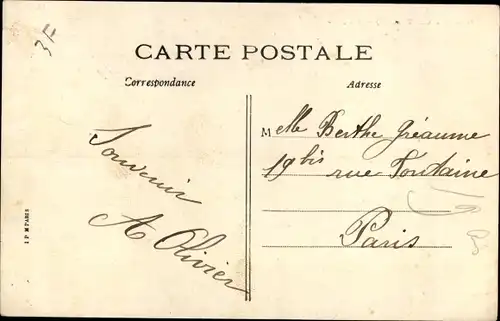 3F
CARTE POSTALE
Correspondance
Adresse
Souvenir
A Olivier
Melle Berthe Gréaume
19bis rue Fontaine
Paris